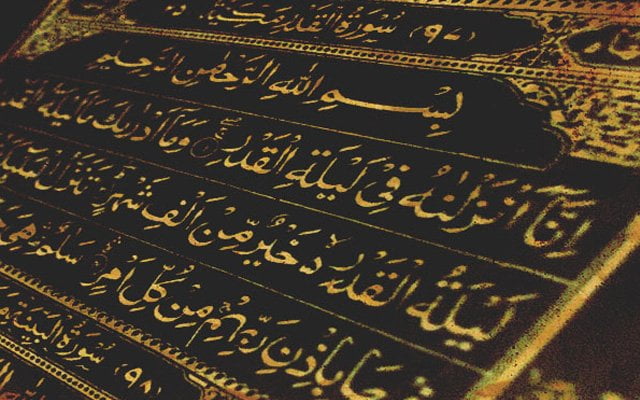 (٩٧) سُورَةُ القَدْرِ مَكِّيَّة
بِسْمِ اللهِ الرَّحْمٰنِ الرَّحِيمِ
اِنَّا اَنْزَلْنٰهُ فِى لَيْلَةِ الْقَدْرِ وَمَا اَدْرٰىكَ مَا لَيْلَةُ
لَيْلَةُ الْقَدْرِ خَيْرٌ مِّنْ اَلْفِ شَهْرٍ تَنَزَّلُ
بِاِذْنِ رَبِّهِمْ مِنْ كُلِّ اَمْرٍ سَلٰمٌ هِىَ
(٩٨) سُورَةُ البَيِّنَةِ